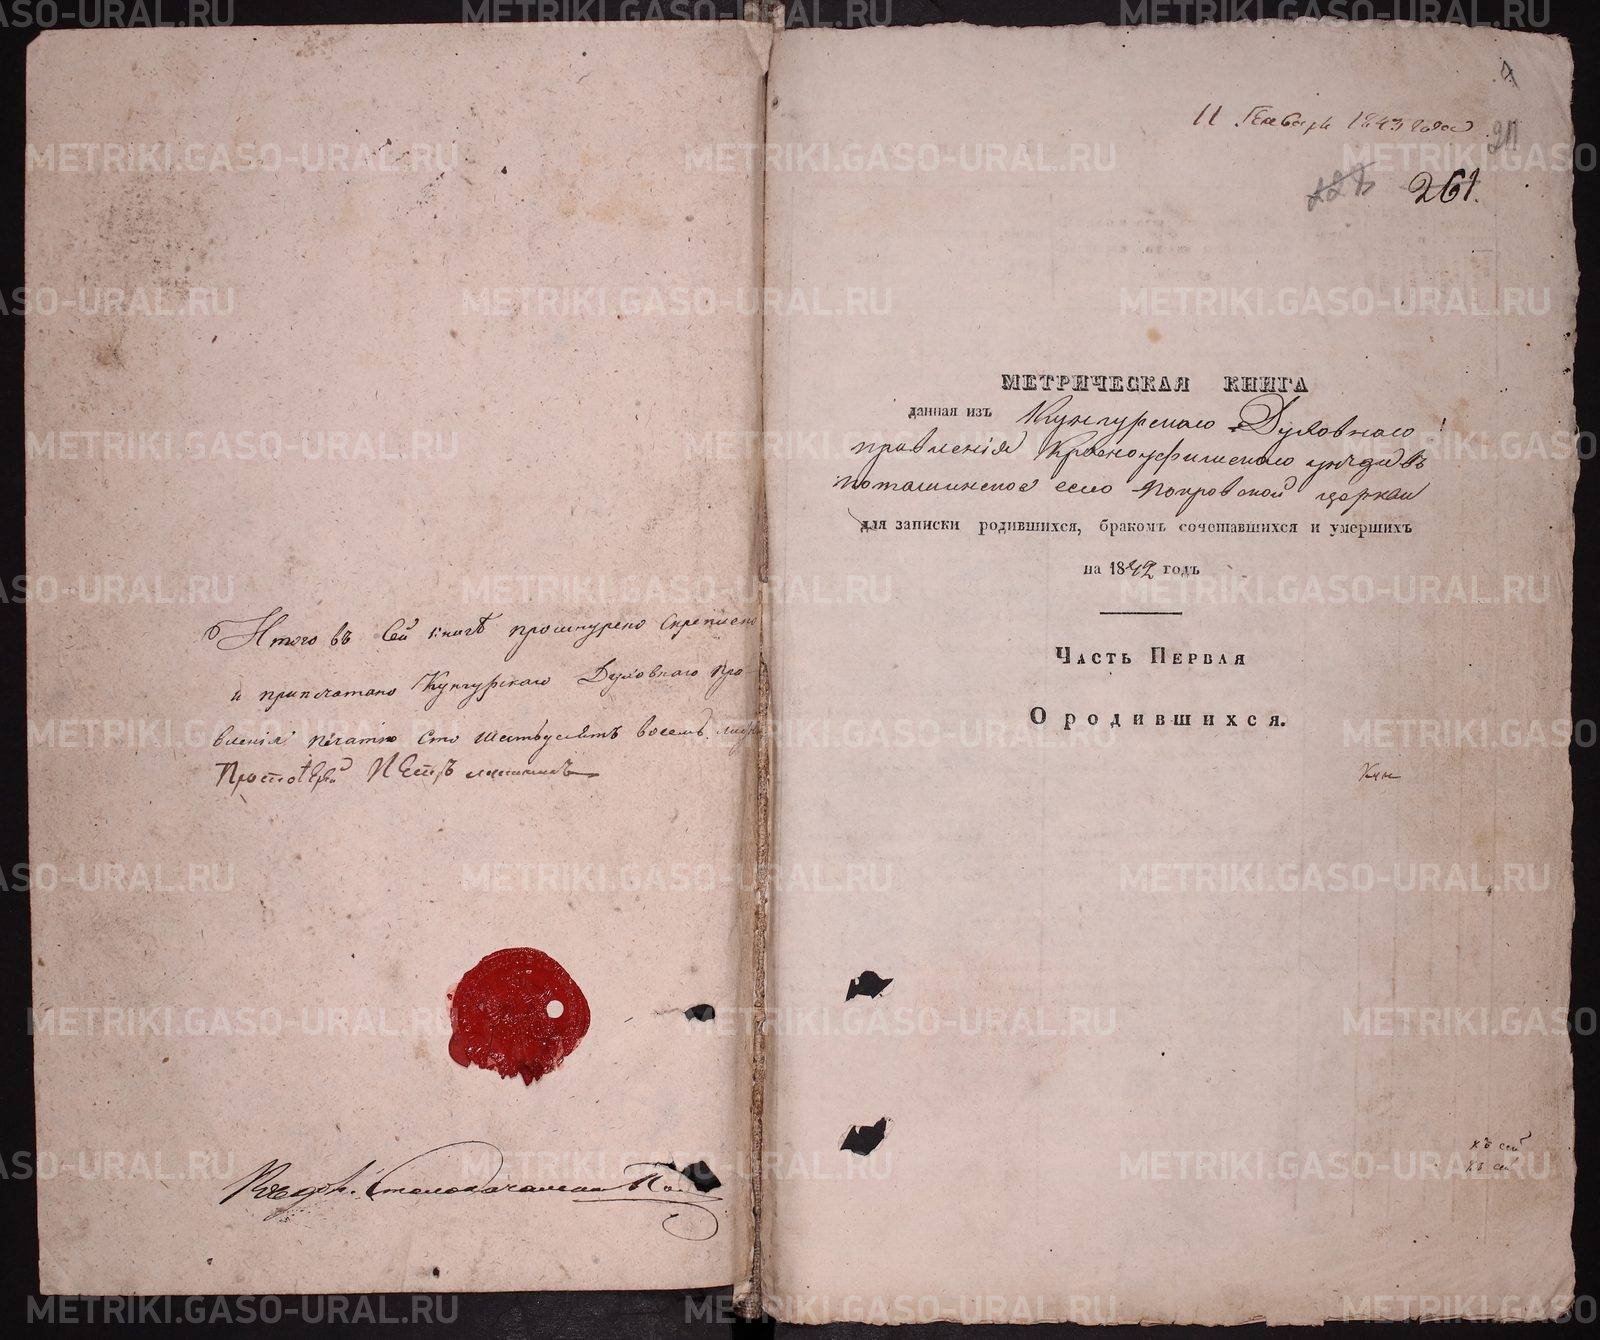 Итого въ сей книгѣ прошнурено скреплено
и припечатано Кунгурскаго Духовнаго Пра-
вленія печатью сто шесть десятъ восемь
Протоіерей Петръ
Столоначальник
11 Генваря 1843 года
261.
МЕТРИЧЕСКАЯ КНИГА
данная изъ Кунгурскаго Духовнаго
правленія Красноуфимскаго уѣзда въ
Поташинское село Покровской церкви
для записки родившихся, бракомъ сочетавшихся и умершихъ
на 1842 годъ
Часть Первая
О родившихся.
къ сей
къ сей
METRIKI.GASO-URAL.RU